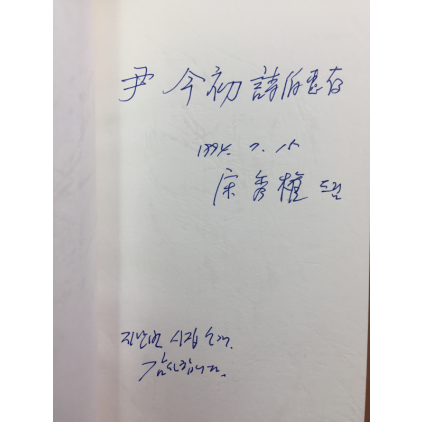 尹 今初 詩伯 惠存
1994. 7. 15
宋 秀 權 드림
지난번 시집 소개.
감사합니다.